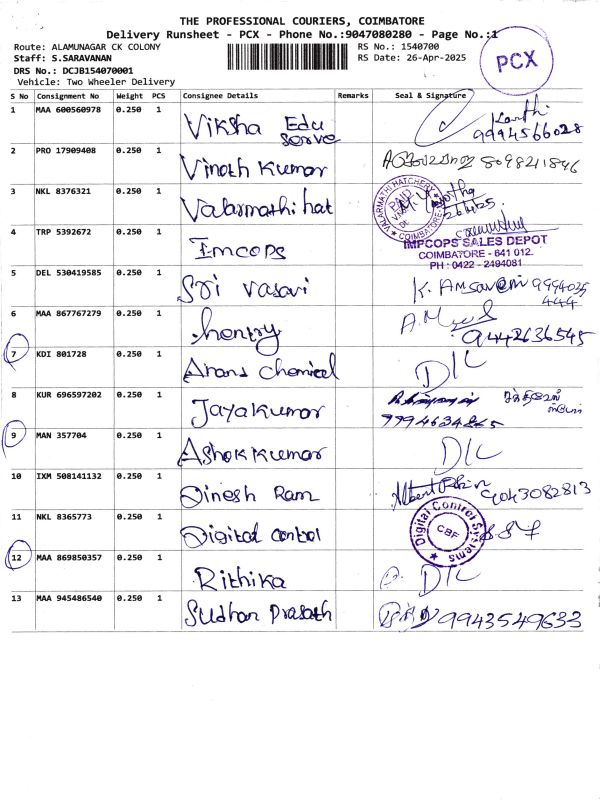 THE PROFESSIONAL COURIERS, COIMBATORE
Delivery Runsheet - PCX - Phone No.:9047080280 - Page No.:1
Route: ALAMUNAGAR CK COLONY
RS No.: 1540700
Staff: S.SARAVANAN
RS Date: 26-Apr-2025
DRS No.: DCJB154070001
Vehicle: Two Wheeler Delivery
PCX
S No Consignment No Weight PCS Consignee Details Remarks Seal & Signature
1 MAA 600560978 0.250 1 Viksha Edu serve Karthi 9994566028
2 PRO 17909408 0.250 1 Vinoth Kumar 8098241846
3 NKL 8376321 0.250 1 Valarmathi hat
VALARMATHI HATCHERY COIMBATORE
26/4/25
4 TRP 5392672 0.250 1 Imcops
IMPCOPS SALES DEPOT
COIMBATORE - 641 012.
PH : 0422 - 2494081
5 DEL 530419585 0.250 1 Sri vasavi K. Amsaveni 9994025 444
6 MAA 867767279 0.250 1 henry A.M 9442636545
7 KDI 801728 0.250 1 Arans chemical D/L
8 KUR 696597202 0.250 1 Jayakumar 9994634865
9 MAN 357704 0.250 1 Ashok Kumar D/L
10 IXM 508141132 0.250 1 Dinesh Ram Albert 9043082813
11 NKL 8365773 0.250 1 Digital control
Digital Control Systems CBF
12 MAA 869850357 0.250 1 Rithika D/L
13 MAA 945486540 0.250 1 Sudhan Prasath 9943549633